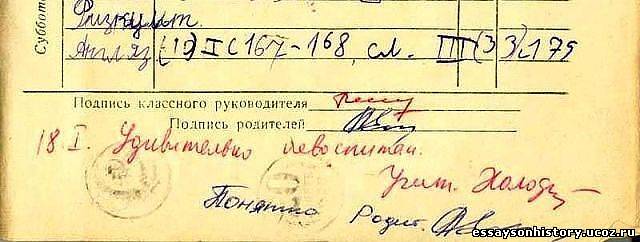 Суббота
Физкульт.
Англ яз (10) I с 167-168, сл. III (3 3) с 179
Подпись классного руководителя
Подпись родителей
18. I. Удивительно невоспитан.
Учит.
Понятно Родит.
essaysonhistory.ucoz.ru